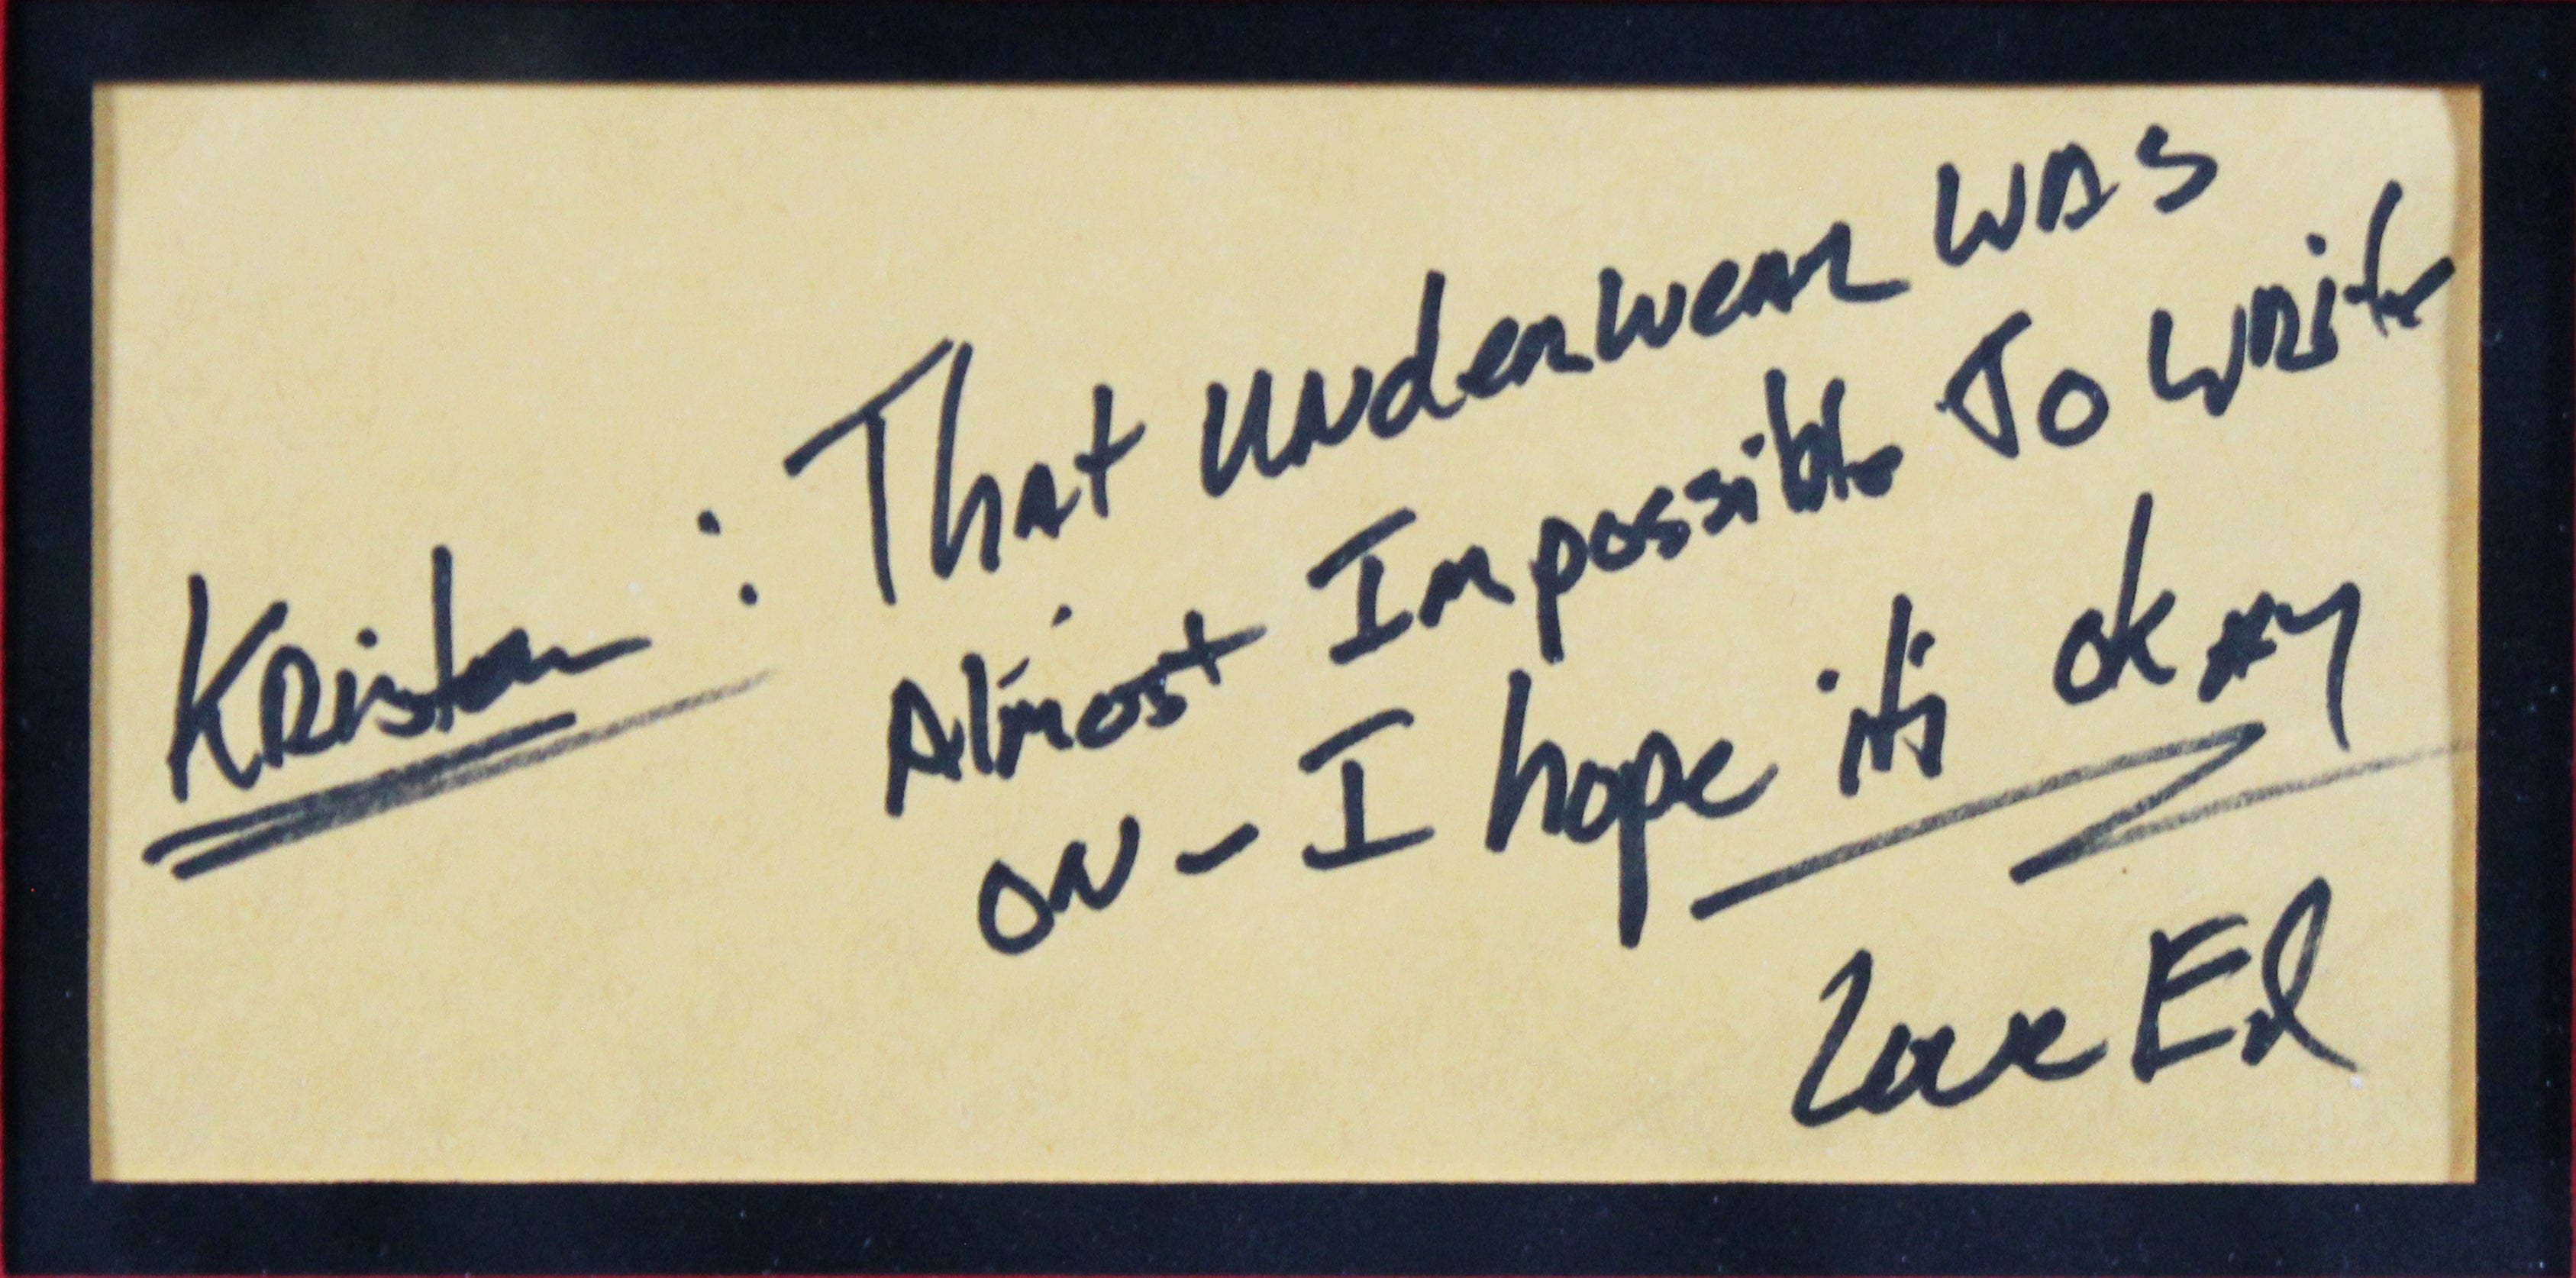 Kristen : That Underwear WAS
Almost Impossible To Write
ON - I hope it's okay
Love Ed